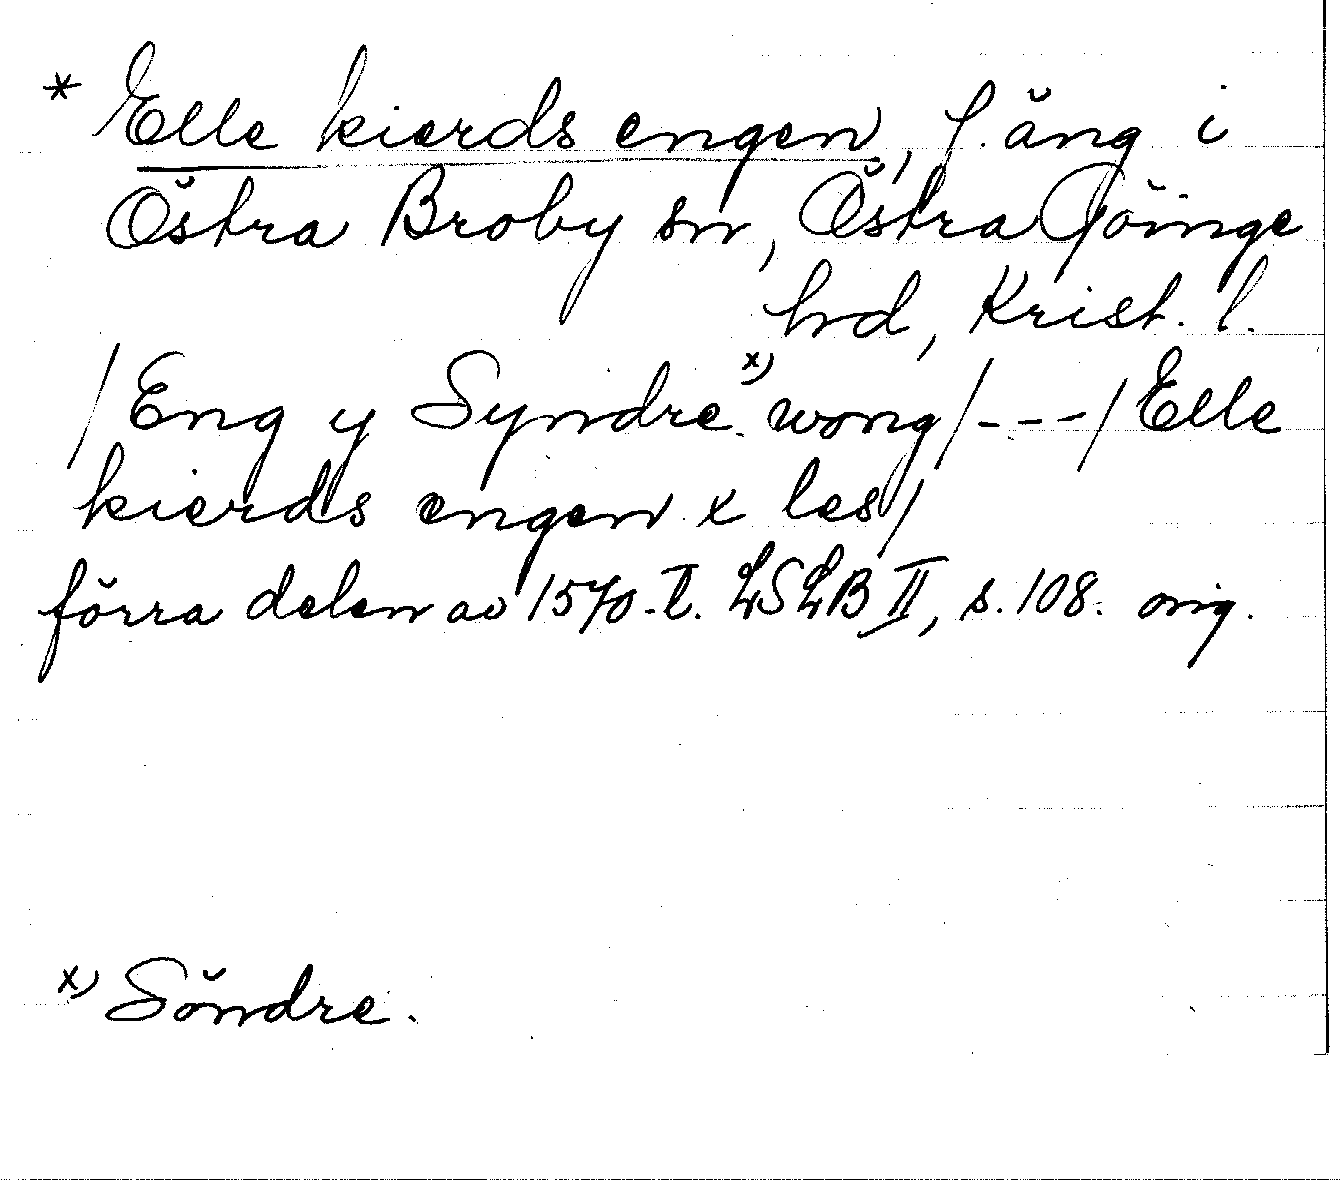 * Elle kierds engen, f. äng i
Östra Broby sn, Östra Göinge
hrd, Krist. l.
/Eng y Syndre x) wong/---/Elle
kierds engen x les/
förra delen av 1570-t. LSLB II, s. 108. orig.
x) Söndre.